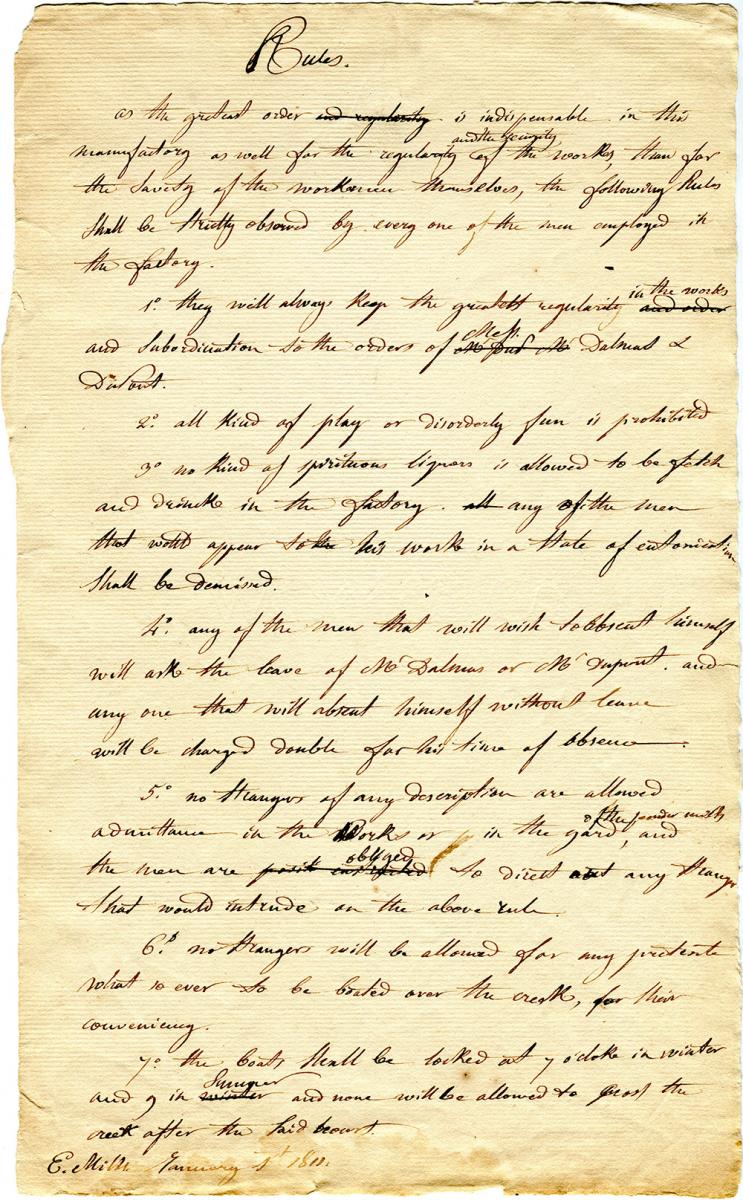 Rules.
as the gretest order and regularity is indispensable in this
manufactory as well for the regularity and the security of the works, than for
the savety of the workmen themselves, the following Rules
Shall be strictly observed by every one of the men employed in
the factory.
1º. they will always keep the greatest regularity in the works and order
and subordination to the orders of Mess. Dalmas &
DuPont.
2º. all kind of play or disorderly fun is prohibited
3º no kind of spirituous liquors is allowed to be fetch
and drinck in the factory. all any of the men
that would appear to his work in a State of entonication
Shall be demissed.
4º. any of the men that will wish to absent himself
will ask the leave of Mr Dalmas or Mr Dupont. and
any one that will absent himself without leave
will be charged double for his time of absence.
5º. no strangers of any description are allowed
admittance in the Works or in the yard of the powder mills, and
the men are obliged to direct out any Stranger
that would intrude on the above rule.
6º. no strangers will be allowed for any pretexte
what so ever to be boated over the creek, for their
conveniency.
7º. the boats Shall be locked at 7 o'cloke in winter
and 9 in Summer winter and none will be allowed to cross the
creek after the said hours.
E. Mills January 1st 1811.